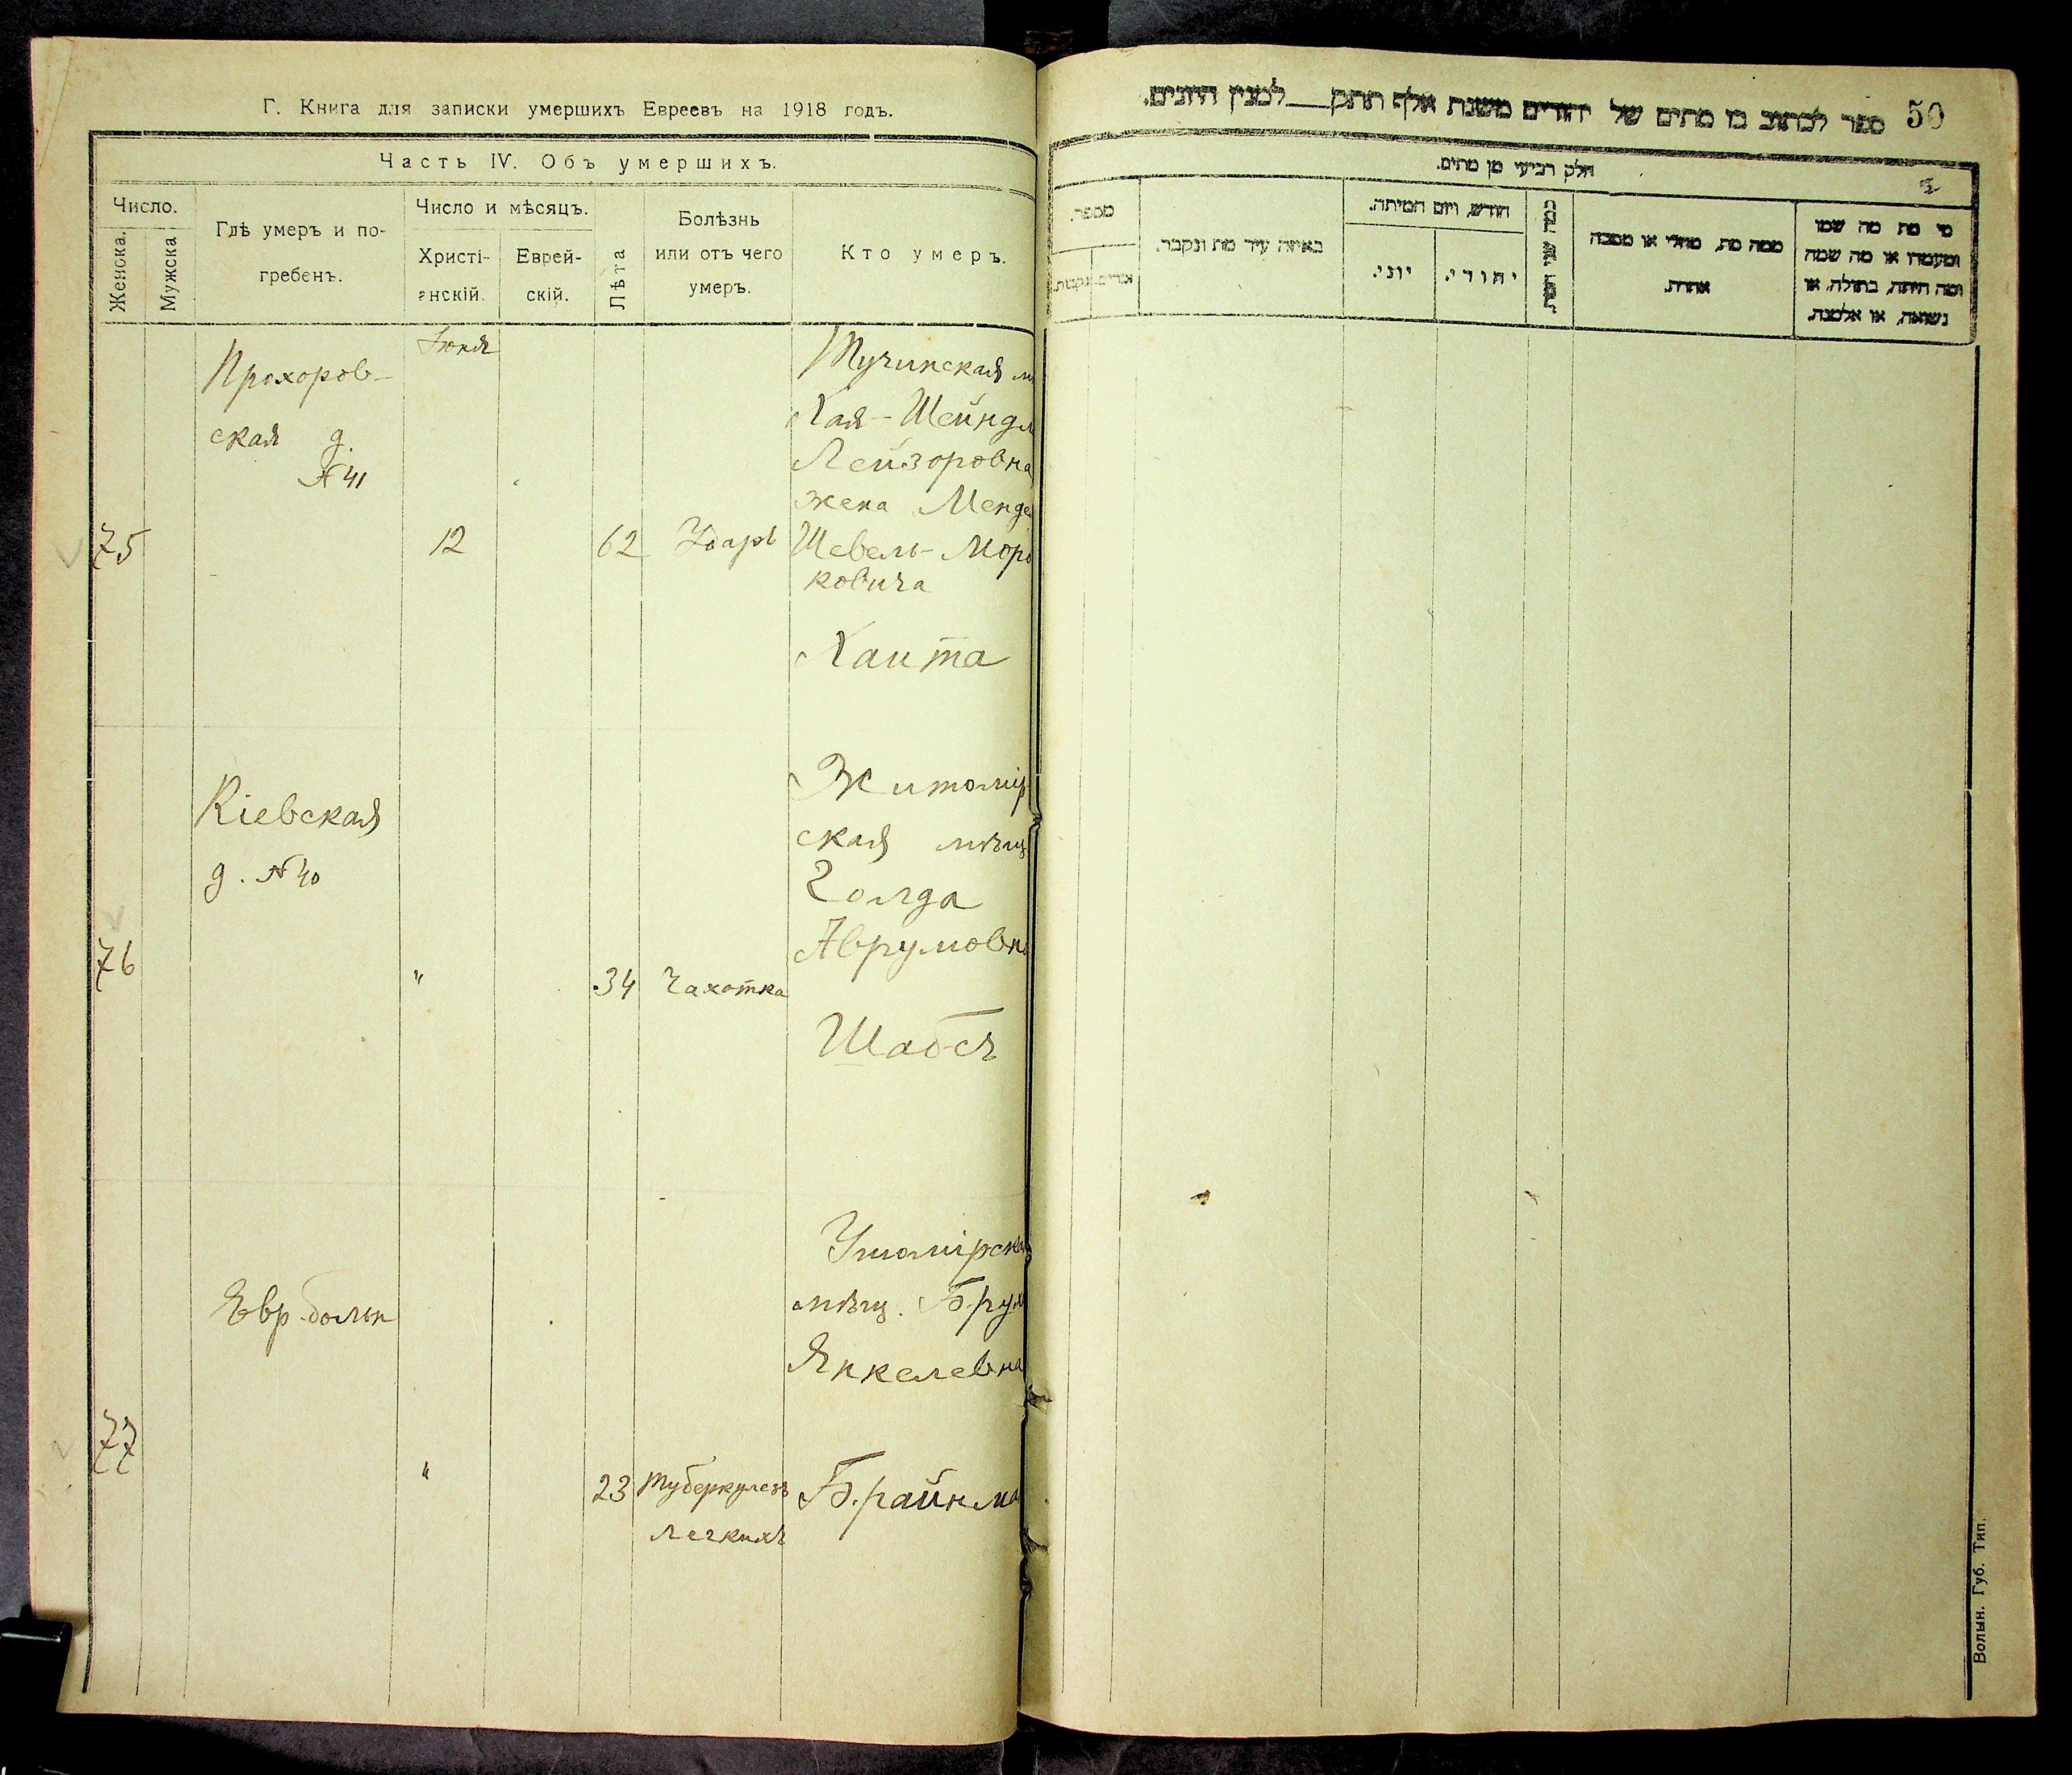 Г. Книга для записки умершихъ Евреевъ на 1918 годъ.
Часть IV. Объ умершихъ.
Число.
Женска.
Мужска
Гдѣ умеръ и по-
гребенъ.
Число и мѣсяцъ.
Христі-
анскій.
Еврей-
скій.
Лѣта
Болѣзнь
или отъ чего
умеръ.
Кто умеръ.
Прохоров-
ская д.
№ 41
Іюня
12
75
62
Ударъ
Тучинская
Хая-Шейндл
Лейзоровна
жена Менде
Шевель-Мор
ковича
Хаита
Кіевская
д. № 40
76
"
34
Чахотка
Житомір
ская мѣщ
Голда
Аврумовн
Шабся
Евр. больн
77
"
23
Туберкулезъ
легкихъ
Ушомірска
мѣщ. Брух
Янкелевна
Брайнма
50
ספר לכתוב בו מתים של יהודים משנת אלף תתק__למנין היונים.
חלק רביעי מן מתים.
מספר.
נקבות.
באיזה עיר מת ונקבר.
חודש ויום המיתה.
יוני.
יהודי.
כמה שני
ממה מת, מחלי או מסבה
אחרת.
מי מת מה שמו
ומעמדו או מה שמה
ומה היתה, בתולה, או
נשואה, או אלמנה.
Волын. Губ. Тип.